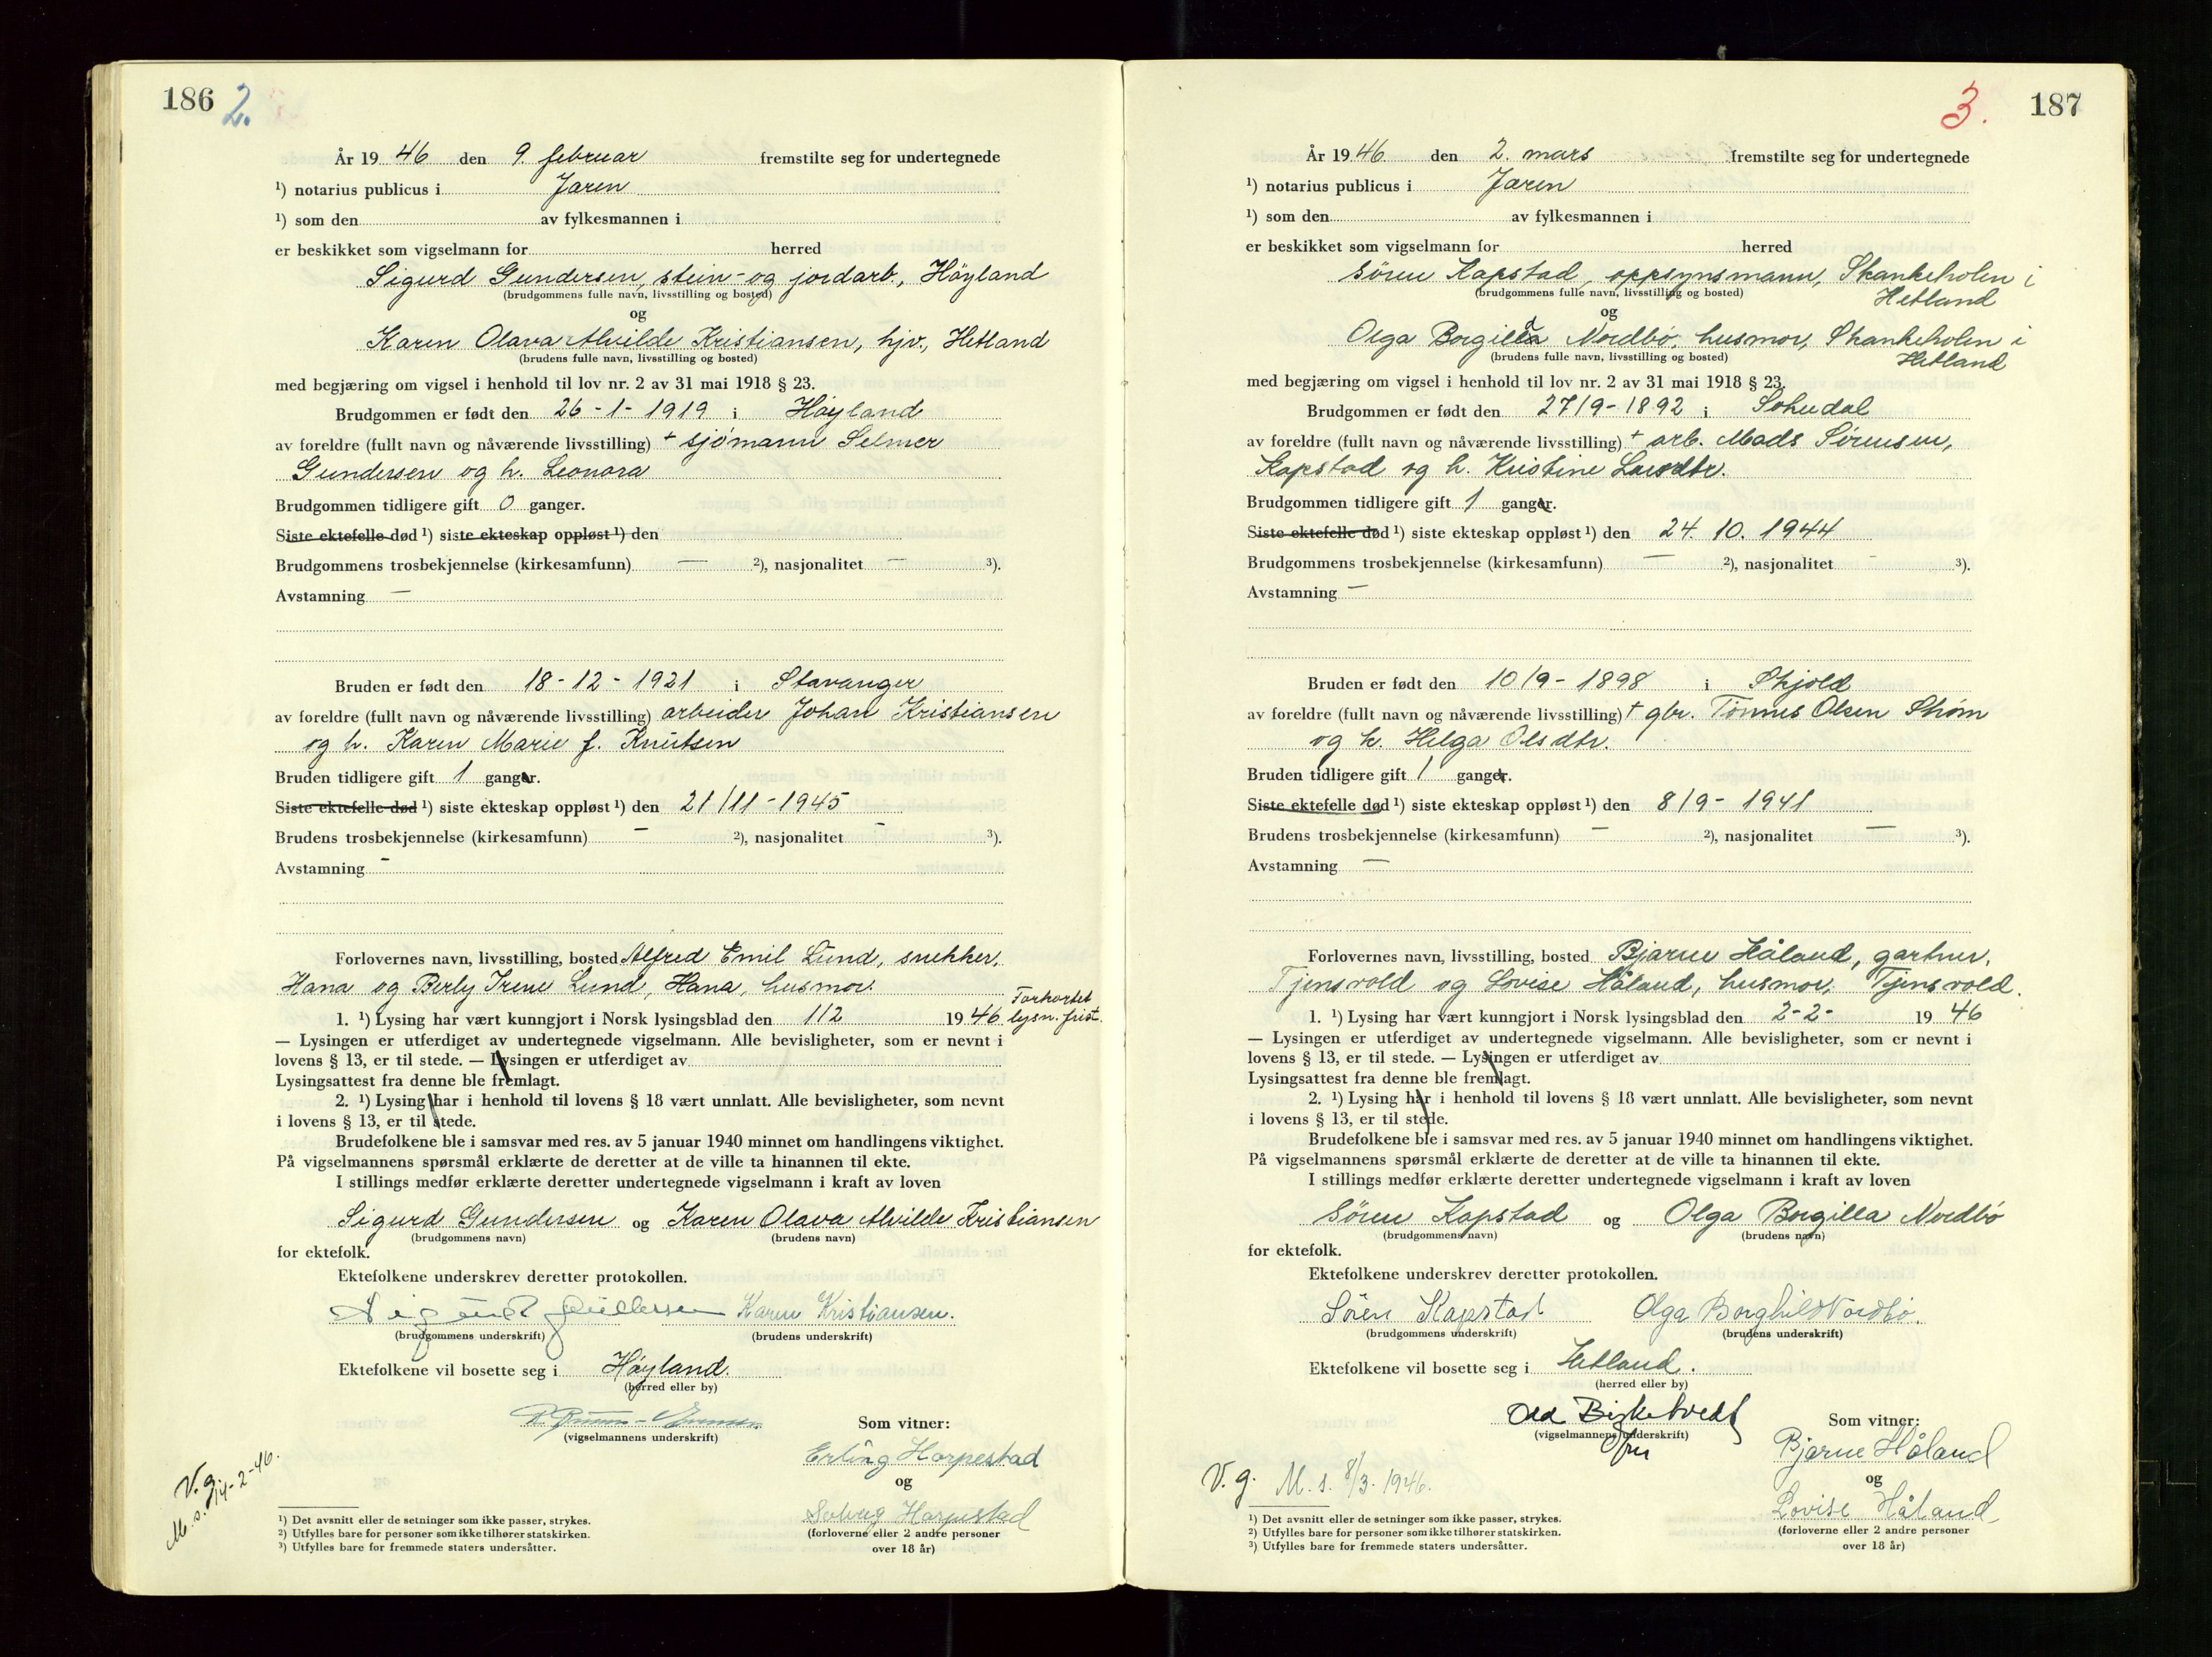 186 2.
År 19 46 den 9. februar fremstilte seg for undertegnede
¹) notarius publicus i Jæren
¹) som den av fylkesmannen i
er beskikket som vigselmann for herred
Sigurd Gundersen, stein- og jordarb., Höyland
(brudgommens fulle navn, livsstilling og bosted)
og
Karen Olava Alvilde Kristiansen, hjv., Hetland
(brudens fulle navn, livsstilling og bosted)
med begjæring om vigsel i henhold til lov nr. 2 av 31 mai 1918 § 23.
Brudgommen er født den 26-1-1919 i Höyland
av foreldre (fullt navn og nåværende livsstilling) + sjömann Selmer
Gundersen og h. Leonora
Brudgommen tidligere gift 0 ganger.
Siste ektefelle død ¹) siste ekteskap oppløst ¹) den
Brudgommens trosbekjennelse (kirkesamfunn) — ²), nasjonalitet — ³).
Avstamning —
Bruden er født den 18-12-1921 i Stavanger
av foreldre (fullt navn og nåværende livsstilling) arbeider Johan Kristiansen
og h. Karen Marie f. Knutsen
Bruden tidligere gift 1 ganger.
Siste ektefelle død ¹) siste ekteskap oppløst ¹) den 21/11-1945
Brudens trosbekjennelse (kirkesamfunn) — ²), nasjonalitet — ³).
Avstamning -
Forlovernes navn, livsstilling, bosted Alfred Emil Lund, snekker,
Hana og Berly Irene Lund, Hana, husmor.
Forkortet
1. ¹) Lysing har vært kunngjort i Norsk lysingsblad den 1/2 19 46. lysn. frist.
— Lysingen er utferdiget av undertegnede vigselmann. Alle bevisligheter, som er nevnt i
lovens § 13, er til stede. — Lysingen er utferdiget av
Lysingsattest fra denne ble fremlagt.
2. ¹) Lysing har i henhold til lovens § 18 vært unnlatt. Alle bevisligheter, som nevnt
i lovens § 13, er til stede.
Brudefolkene ble i samsvar med res. av 5 januar 1940 minnet om handlingens viktighet.
På vigselmannens spørsmål erklærte de deretter at de ville ta hinannen til ekte.
I stillings medfør erklærte deretter undertegnede vigselmann i kraft av loven
Sigurd Gundersen og Karen Olava Alvilde Kristiansen
(brudgommens navn) (brudens navn)
for ektefolk.
Ektefolkene underskrev deretter protokollen.
Sigurd Gundersen Karen Kristiansen.
(brudgommens underskrift) (brudens underskrift)
Ektefolkene vil bosette seg i Höyland.
(herred eller by)
(vigselmannens underskrift)
Som vitner:
Erling Harpestad
og
Solveig Harpestad
(forloverne eller 2 andre personer
over 18 år)
V.g.
M.s. 14-2-46.
¹) Det avsnitt eller de setninger som ikke passer, strykes.
²) Utfylles bare for personer som ikke tilhører statskirken.
³) Utfylles bare for fremmede staters undersåtter.
3. 187
År 19 46 den 2. mars fremstilte seg for undertegnede
¹) notarius publicus i Jæren
¹) som den av fylkesmannen i
er beskikket som vigselmann for herred
Sören Kapstad, oppsynsmann, Skankeholen i
(brudgommens fulle navn, livsstilling og bosted) Hetland
og
Olga Borgilda Nordbö, husmor, Skankeholen i
(brudens fulle navn, livsstilling og bosted) Hetland
med begjæring om vigsel i henhold til lov nr. 2 av 31 mai 1918 § 23.
Brudgommen er født den 27/9-1892 i Sokndal
av foreldre (fullt navn og nåværende livsstilling) + arb. Mads Sörensen,
Kapstad og h. Kristine Larsdtr.
Brudgommen tidligere gift 1 ganger.
Siste ektefelle død ¹) siste ekteskap oppløst ¹) den 24. 10. 1944
Brudgommens trosbekjennelse (kirkesamfunn) — ²), nasjonalitet - ³).
Avstamning —
Bruden er født den 10/9-1898 i Skjold
av foreldre (fullt navn og nåværende livsstilling) + gbr. Tönnes Olsen Skröm
og h. Helga Olsdtr.
Bruden tidligere gift 1 ganger.
Siste ektefelle død ¹) siste ekteskap oppløst ¹) den 8/9-1941
Brudens trosbekjennelse (kirkesamfunn) — ²), nasjonalitet — ³).
Avstamning —
Forlovernes navn, livsstilling, bosted Bjarne Håland, gartner,
Tjensvold og Lovise Håland, husmor, Tjensvold.
1. ¹) Lysing har vært kunngjort i Norsk lysingsblad den 2-2- 19 46
— Lysingen er utferdiget av undertegnede vigselmann. Alle bevisligheter, som er nevnt i
lovens § 13, er til stede. — Lysingen er utferdiget av
Lysingsattest fra denne ble fremlagt.
2. ¹) Lysing har i henhold til lovens § 18 vært unnlatt. Alle bevisligheter, som nevnt
i lovens § 13, er til stede.
Brudefolkene ble i samsvar med res. av 5 januar 1940 minnet om handlingens viktighet.
På vigselmannens spørsmål erklærte de deretter at de ville ta hinannen til ekte.
I stillings medfør erklærte deretter undertegnede vigselmann i kraft av loven
Sören Kapstad og Olga Borgilla Nordbö
(brudgommens navn) (brudens navn)
for ektefolk.
Ektefolkene underskrev deretter protokollen.
Sören Kapstad Olga Borghild Nordbö.
(brudgommens underskrift) (brudens underskrift)
Ektefolkene vil bosette seg i Hetland.
(herred eller by)
Odd Birketvedt
(vigselmannens underskrift)
fm
Som vitner:
Bjarne Håland
og
Lovise Håland
(forloverne eller 2 andre personer
over 18 år)
V.g. M.s. 8/3.1946.
¹) Det avsnitt eller de setninger som ikke passer, strykes.
²) Utfylles bare for personer som ikke tilhører statskirken.
³) Utfylles bare for fremmede staters undersåtter.